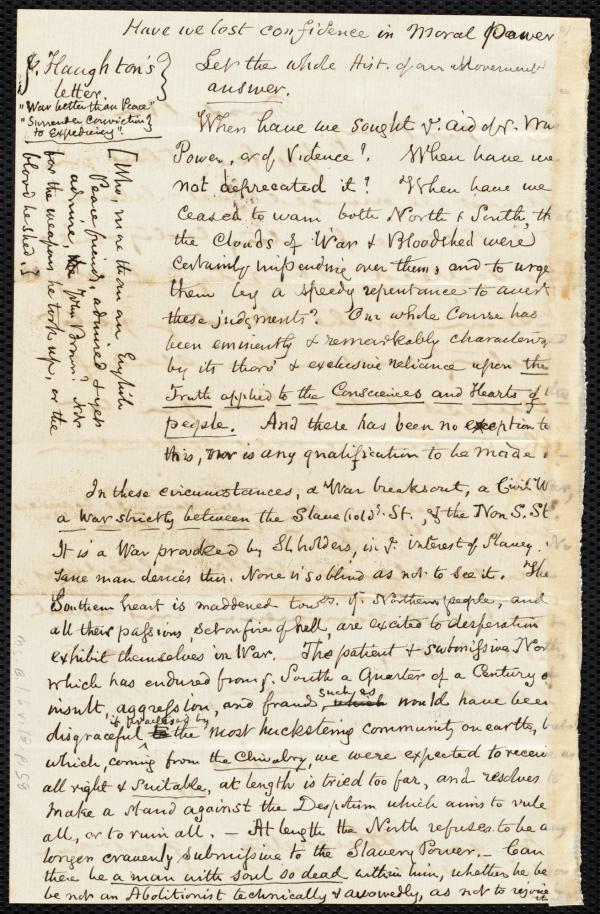 Have we lost confidence in Moral Power
J. Haughton's
letter.
"War better than Peace"
"Surrender Convictions
to Expediency".
[Who, more than an English
Peace friend, admired & yet
admires, John Brown? Not
for the weapons he took up, or the
blood he shed.]
Let the whole Hist. of our Movement
answer.
When have we sought ye. aid of ye. War
Power, or of Violence? When have we
not deprecated it? When have we
Ceased to warn both North & South, th
the Clouds of War & Bloodshed were
certainly impending over them; and to urge
them by a speedy repentance to avert
these judgments? Our whole Course has
been eminently & remarkably characterized
by its thoro' & exclusive reliance upon the
Truth applied to the Consciences and Hearts of
people. And there has been no exception to
this, nor is any qualification to be made.
In these circumstances, a War breaks out, a Civil W
a War strictly between the Slavehold'g. St., & the Non S. St.
It is a War provoked by Slaveholders, in ye. interest of Slavery. No
sane man denies this. None is so blind as not to see it. The
Southern heart is maddened tow'ds. ye. Northern people, and
all their passions, set on fire of hell, are excited to desperation
exhibit themselves in War. The patient & submissive North,
which has endured from ye. South a Quarter of a Century of
insult, aggression, and fraud, such as which would have been
disgraceful if practised by to the most huckstering community on earth, b
which, coming from the Chivalry, we were expected to receive as
all right & suitable, at length is tried too far, and resolves to
make a stand against the Despotism which aims to rule
all, or to ruin all. – At length the North refuses to be any
longer cravenly submissive to the Slavery Power. – Can
there be a man with soul so dead within him, whether he be or
be not an Abolitionist technically & avowedly, as not to rejoice